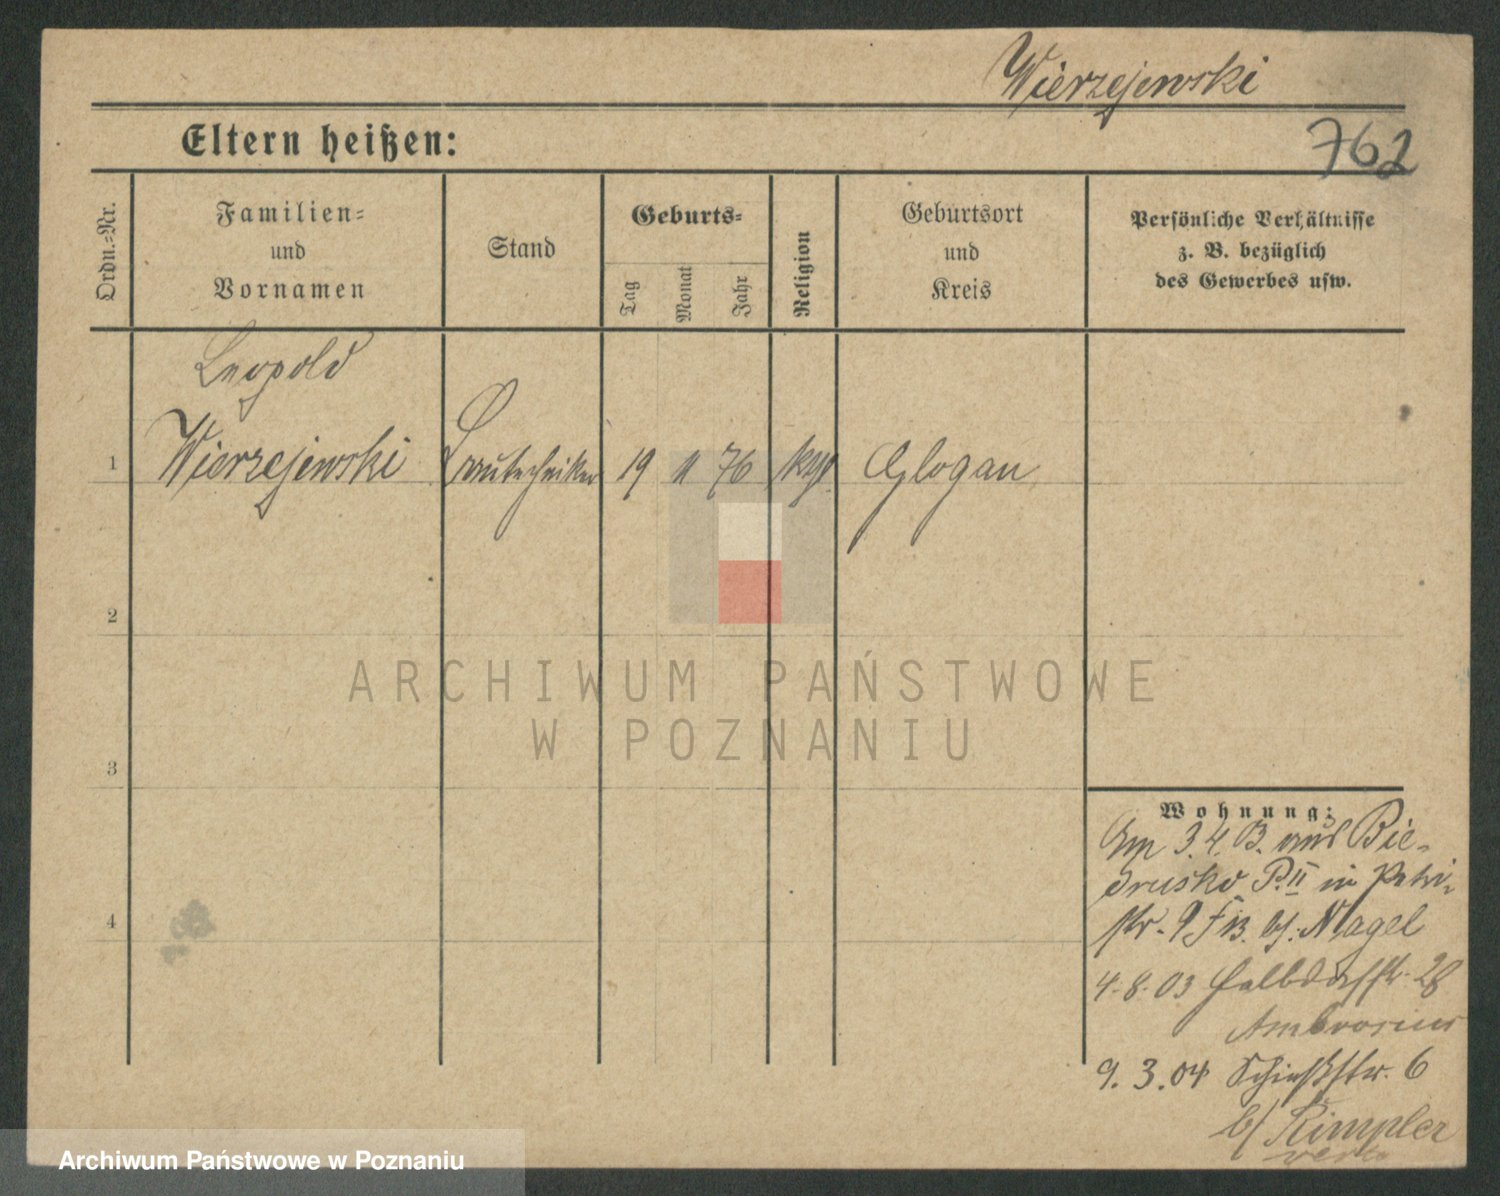 Wierzejewski
762
Eltern heißen:
Ordn.-Nr.
Familien-
und
Vornamen
Stand
Geburts-
Tag
Monat
Jahr
Religion
Geburtsort
und
Kreis
Persönliche Verhältnisse
z. B. bezüglich
des Gewerbes usw.
Leopold
1 Wierzejewski Bautechniker 19 11 76 Glogau
2
3
4
ARCHIWUM PAŃSTWOWE
W POZNANIU
Wohnung:
3. 4. 03. aus Bie-
drusko P. II in Petri-
str. 9 Nagel
4. 8. 03 Halbdorfstr. 28
Ambrosius
9. 3. 04 Schießstr. 6
b/ Rimpler
Archiwum Państwowe w Poznaniu